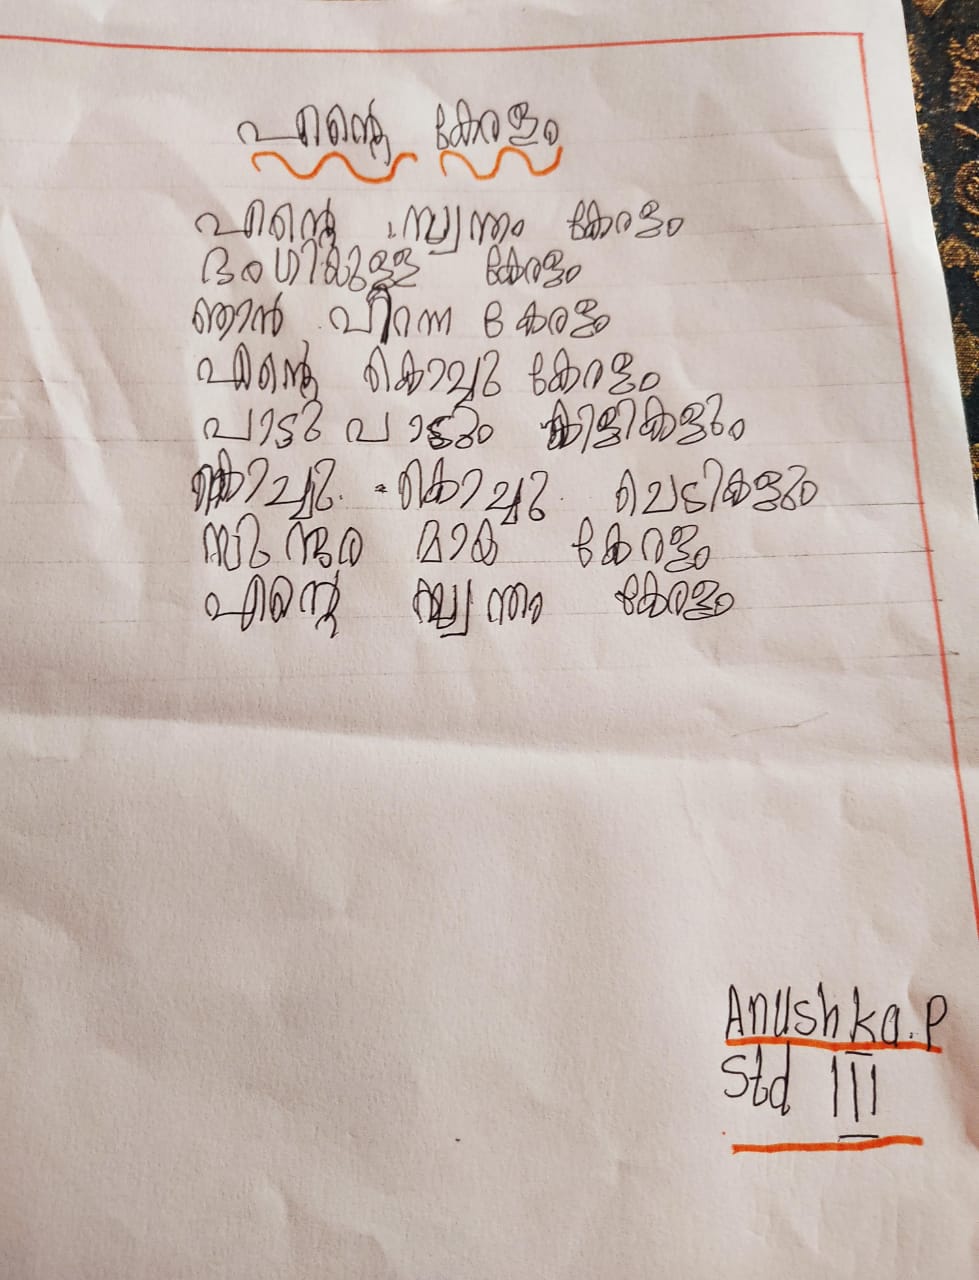 എന്റെ കേരളം
എന്റെ സ്വന്തം കേരളം
ഭംഗിയുള്ള കേരളം
ഞാൻ പിറന്ന കേരളം
എന്റെ കൊച്ചു കേരളം
പാട്ടു പാടും കിളികളും
കൊച്ചു കൊച്ചു ചെടികളും
സുന്ദര മായ കേരളം
എന്റെ സ്വന്തം കേരളം
Anushka.P
Std III